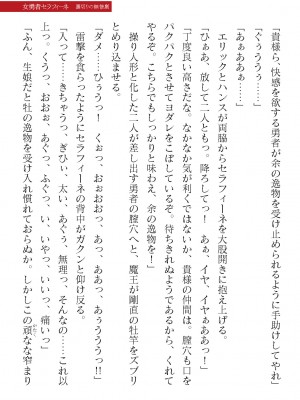 女勇者セラフィーネ 裏切りの触放獄
「貴様ら、快感を欲する勇者が余の逸物を受け止められるように手助けしてやれ」
「ぐぅううう……」
「あぁああぁ……」
エリックとハンスが両脇からセラフィーネを大股開きに抱え上げる。
「ひぁあ、放して二人ともっ。降ろしてっ！　あぁ、イヤ、イヤぁああっ！」
「丁度良い高さだな。なかなか気が利くではないか、貴様の仲間は。膣穴も口を
パクパクとさせてヨダレをこぼしているぞ。待ちきれぬようであるから、くれて
やるぞ。こちらでもしっかりと味わえ、余の逸物を！」
操り人形と化した二人が差し出す勇者の膣穴へと、魔王が剛直の牡竿をズブリ
とめり込ませる。
「ダメ……ひぅうっ　くぉっ、おぉおおぅ、あっ、ああ、あぅううううっ!!」
雷撃を食らったようにセラフィーネの背中がガクンと仰け反る。
「入って……きちゃうっ、ぎひぃ、太い、あぐぅ、無理っ、そんなの……これ以
上っ。くうっ、おおっ、あぐっ、ふぐっ、い、いやっ、いいっ、痛いっ」
「ふん、生娘だと牡の逸物を受け入れ慣れておらぬか。しかしこの頑な窄まり